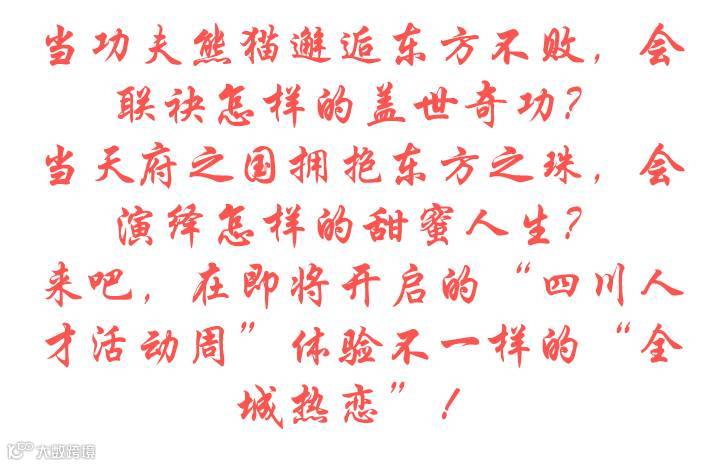 当功夫熊猫邂逅东方不败，会
联袂怎样的盖世奇功？
当天府之国拥抱东方之珠，会
演绎怎样的甜蜜人生？
来吧，在即将开启的“四川人
才活动周”体验不一样的“全
城热恋”！
大数跨境